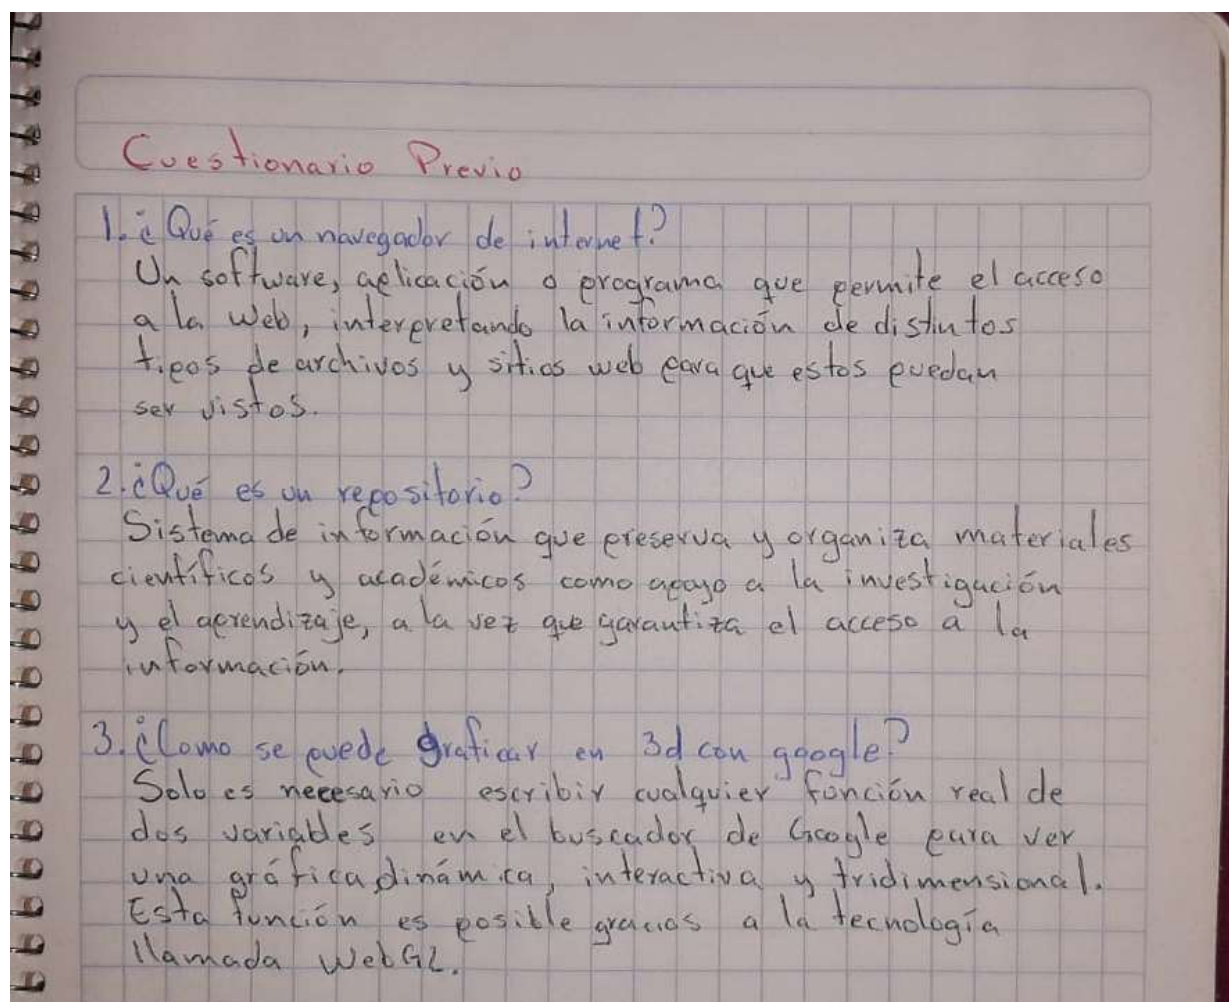 Cuestionario Previo
1. ¿Qué es un navegador de internet?
Un software, aplicación o programa que permite el acceso
a la web, interpretando la información de distintos
tipos de archivos y sitios web para que estos puedan
ser vistos.
2. ¿Qué es un repositorio?
Sistema de información que preserva y organiza materiales
científicos y académicos como apoyo a la investigación
y el aprendizaje, a la vez que garantiza el acceso a la
información.
3. ¿Como se puede graficar en 3d con google?
Solo es necesario escribir cualquier función real de
dos variables en el buscador de Google para ver
una gráfica dinámica, interactiva y tridimensional.
Esta función es posible gracias a la tecnología
llamada WebGL.